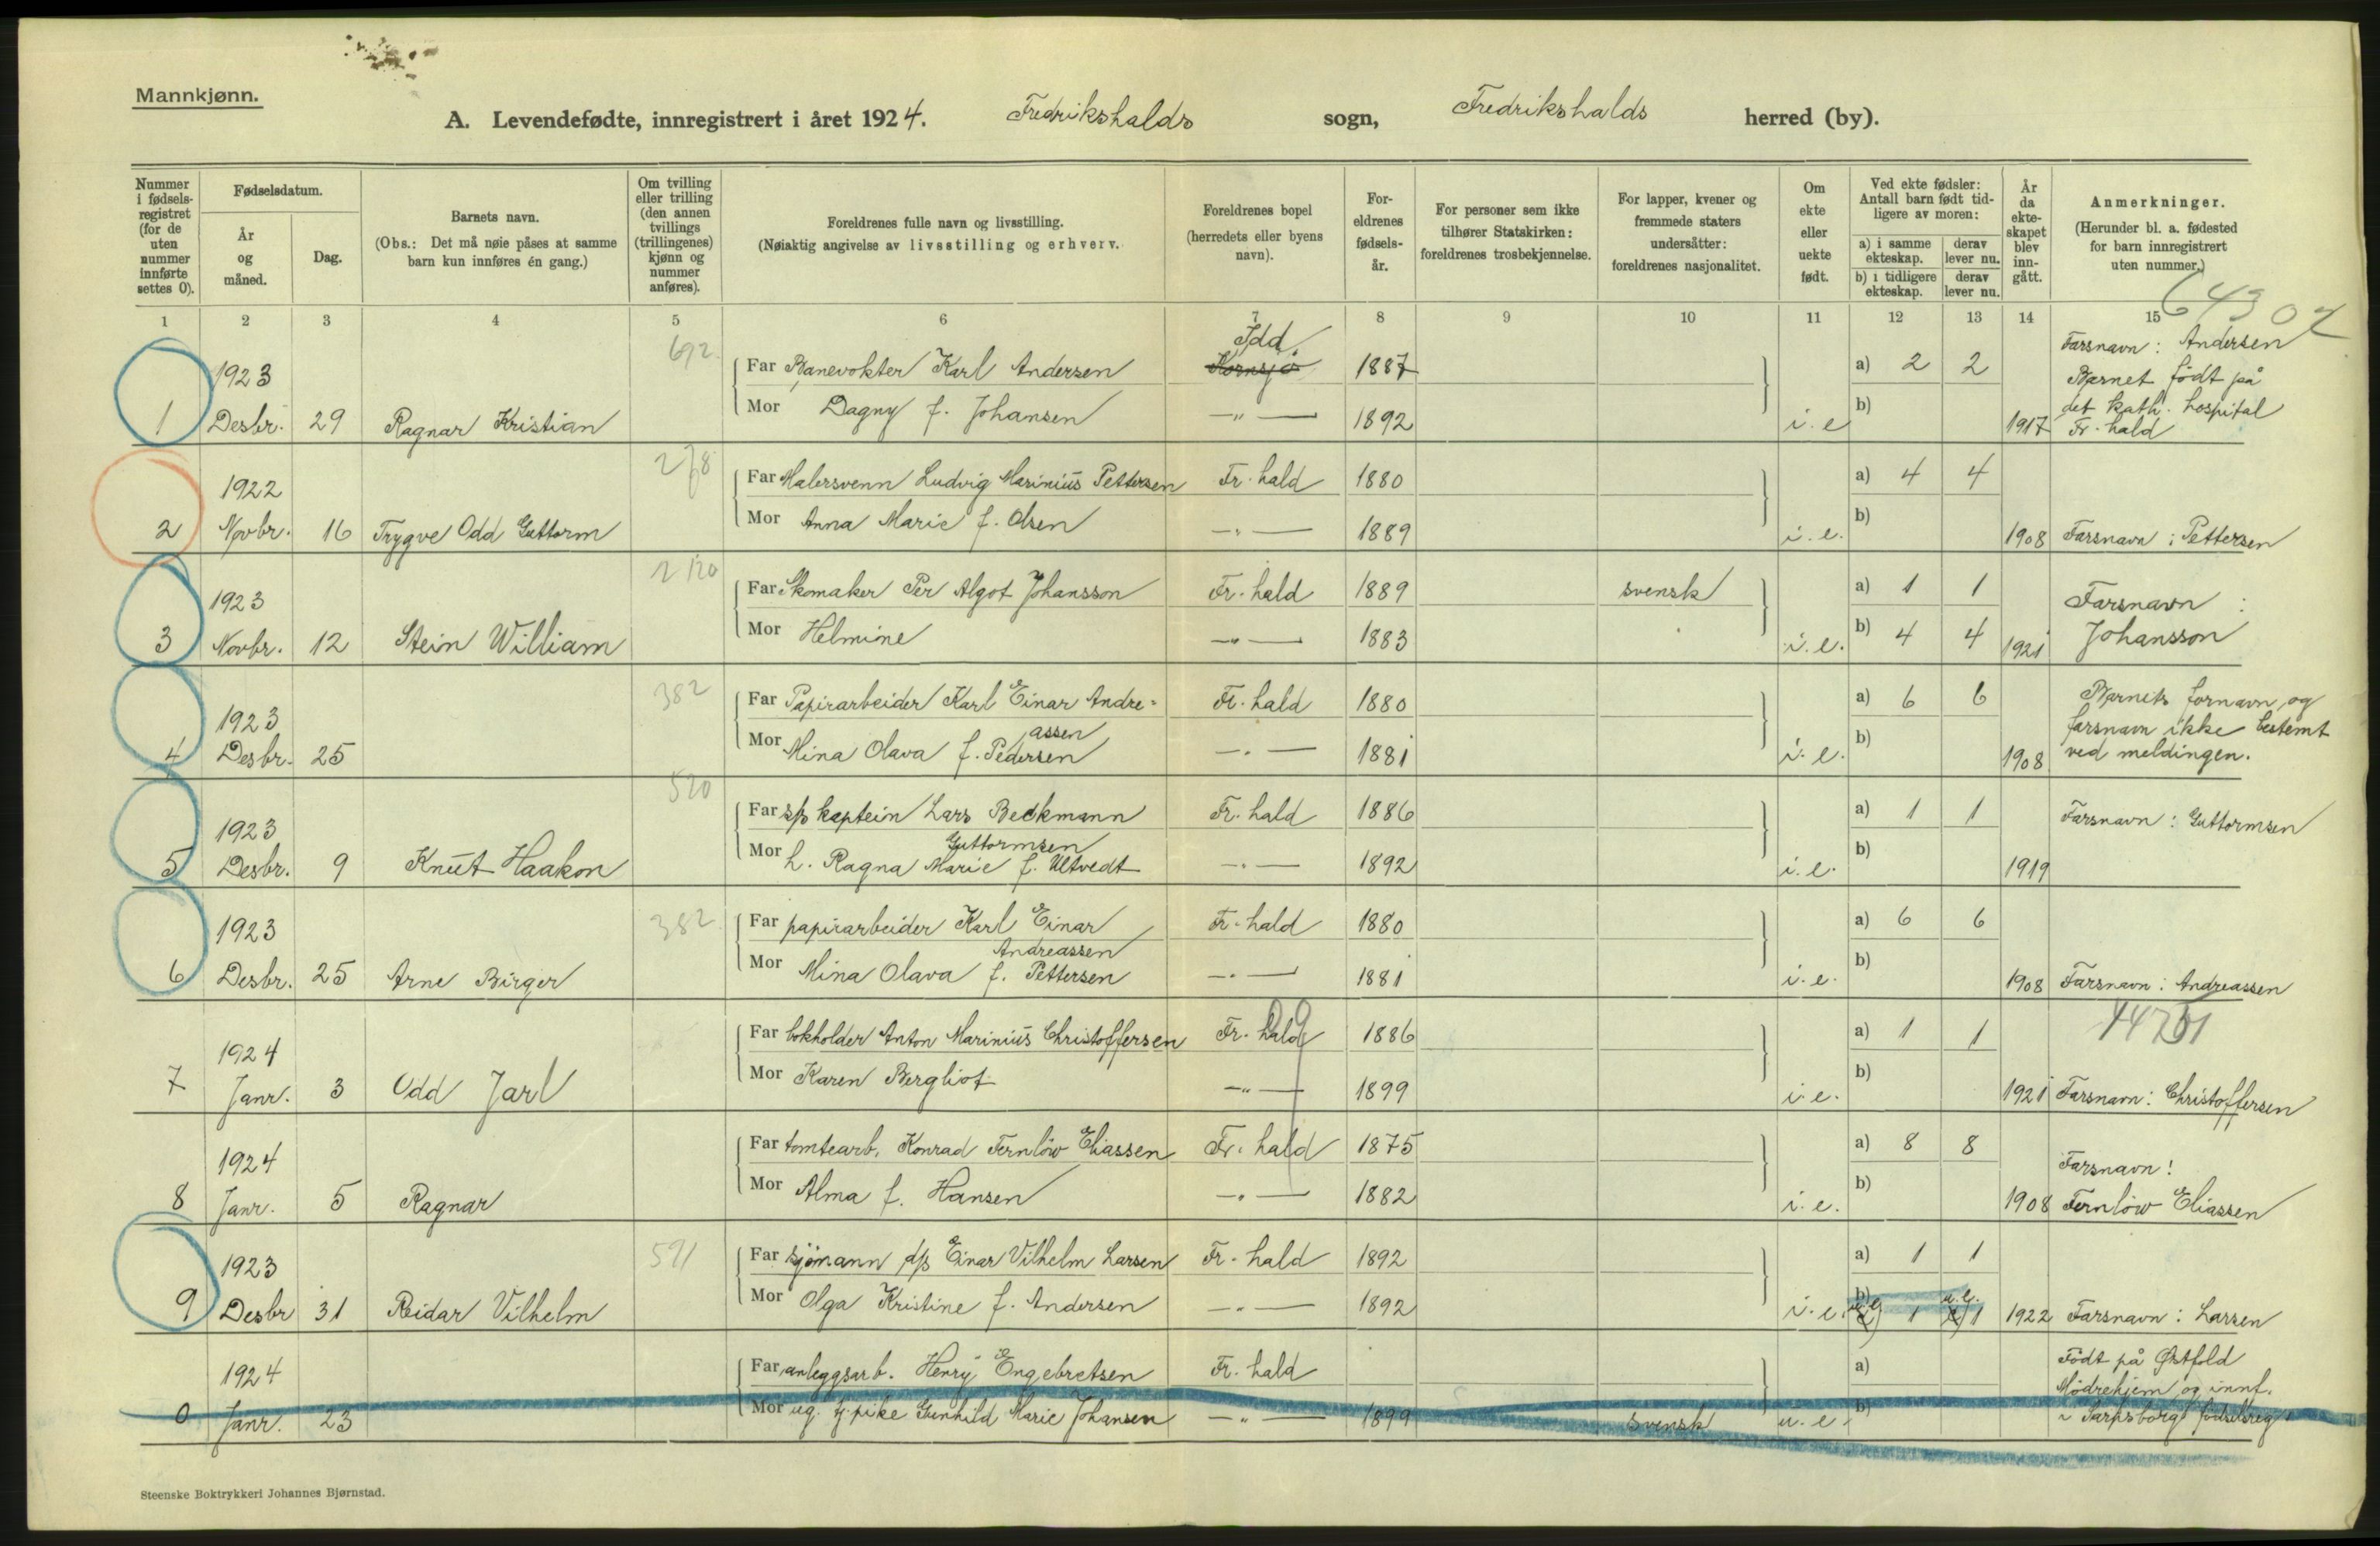 Mannkjønn.
A. Levendefødte, innregistrert i året 1924. Fredrikshalds sogn, Fredrikshalds herred (by).
Nummer i fødselsregistret (for de uten nummer innførte settes 0).
Fødselsdatum.
År og måned.
Dag.
Barnets navn.
(Obs.: Det må nøie påses at samme barn kun innføres én gang.)
Om tvilling eller trilling (den annen tvillings (trillingenes) kjønn og nummer anføres).
Foreldrenes fulle navn og livsstilling.
(Nøiaktig angivelse av livsstilling og erhverv.
Foreldrenes bopel (herredets eller byens navn).
Foreldrenes fødselsår.
For personer som ikke tilhører Statskirken: foreldrenes trosbekjennelse.
For lapper, kvener og fremmede staters undersåtter: foreldrenes nasjonalitet.
Om ekte eller uekte født.
Ved ekte fødsler: Antall barn født tidligere av moren:
a) i samme ekteskap. derav lever nu.
b) i tidligere ekteskap. derav lever nu.
År da ekteskapet blev inngått.
Anmerkninger.
(Herunder bl. a. fødested for barn innregistrert uten nummer.)
1 2 3 4 5 6 7 8 9 10 11 12 13 14 15
64307
692 Idd.
1 1923 Desbr. 29 Ragnar Kristian
Far Banevokter Karl Andersen Kornsjø 1887 a) 2 2
Mor Dagny f. Johansen —"— 1892 i.e b) 1917
Farsnavn: Andersen
Barnet født på
det kath. hospital
Fr.hald
278
2 1922 Novbr. 16 Trygve Odd Guttorm
Far Malersvenn Ludvig Marinius Pettersen Fr.hald 1880 a) 4 4
Mor Anna Marie f. Olsen —"— 1889 i.e. b) 1908 Farsnavn: Pettersen
2120
3 1923 Novbr. 12 Stein William
Far Skomaker Per Algot Johansson Fr.hald 1889 svensk a) 1 1
Mor Helmine —"— 1883 i.e. b) 4 4 1921
Farsnavn:
Johansson
382
4 1923 Desbr. 25
Far Papirarbeider Karl Einar Andre-
assen Fr.hald 1880 a) 6 6
Mor Mina Olava f. Pedersen —"— 1881 i.e. b) 1908
Barnets fornavn og
farsnavn ikke bestemt
ved meldingen.
520
5 1923 Desbr. 9 Knut Haakon
Far s/s kaptein Lars Beckmann
Guttormsen Fr.hald 1886 a) 1 1
Mor h. Ragna Marie f. Ultvedt —"— 1892 i.e. b) 1919
Farsnavn: Guttormsen
382
6 1923 Desbr. 25 Arne Birger
Far papirarbeider Karl Einar
Andreassen Fr.hald 1880 a) 6 6
Mor Mina Olava f. Pettersen —"— 1881 i.e. b) 1908 Farsnavn: Andreassen
7 1924 Janr. 3 Odd Jarl
Far bokholder Anton Marinius Christoffersen Fr.hald 1886 a) 1 1
Mor Karen Bergliot —"— 1899 i.e. b) 1921 Farsnavn: Christoffersen
8 1924 Janr. 5 Ragnar
Far tomtearb. Konrad Fernlöw Eliassen Fr.hald 1875 a) 8 8
Mor Alma f. Hansen —"— 1882 i.e. b) 1908
Farsnavn:
Fernlöw Eliassen
591
9 1923 Desbr 31 Reidar Vilhelm
Far sjömann d/s Einar Vilhelm Larsen Fr.hald 1892 a) 1 1
Mor Olga Kristine f. Andersen —"— 1892 i.e. b) u.e. 1 u.e. 1 1922 Farsnavn: Larsen
0 1924 Janr. 23
Far anleggsarb. Henry Engebretsen Fr.hald a)
Mor ug. tj.pike Gunhild Marie Johansen —"— 1899 svensk u.e. b)
Født på Østfold
Mødrehjem og innf.
i Sarpsborg fødselsreg.
Steenske Boktrykkeri Johannes Bjørnstad.